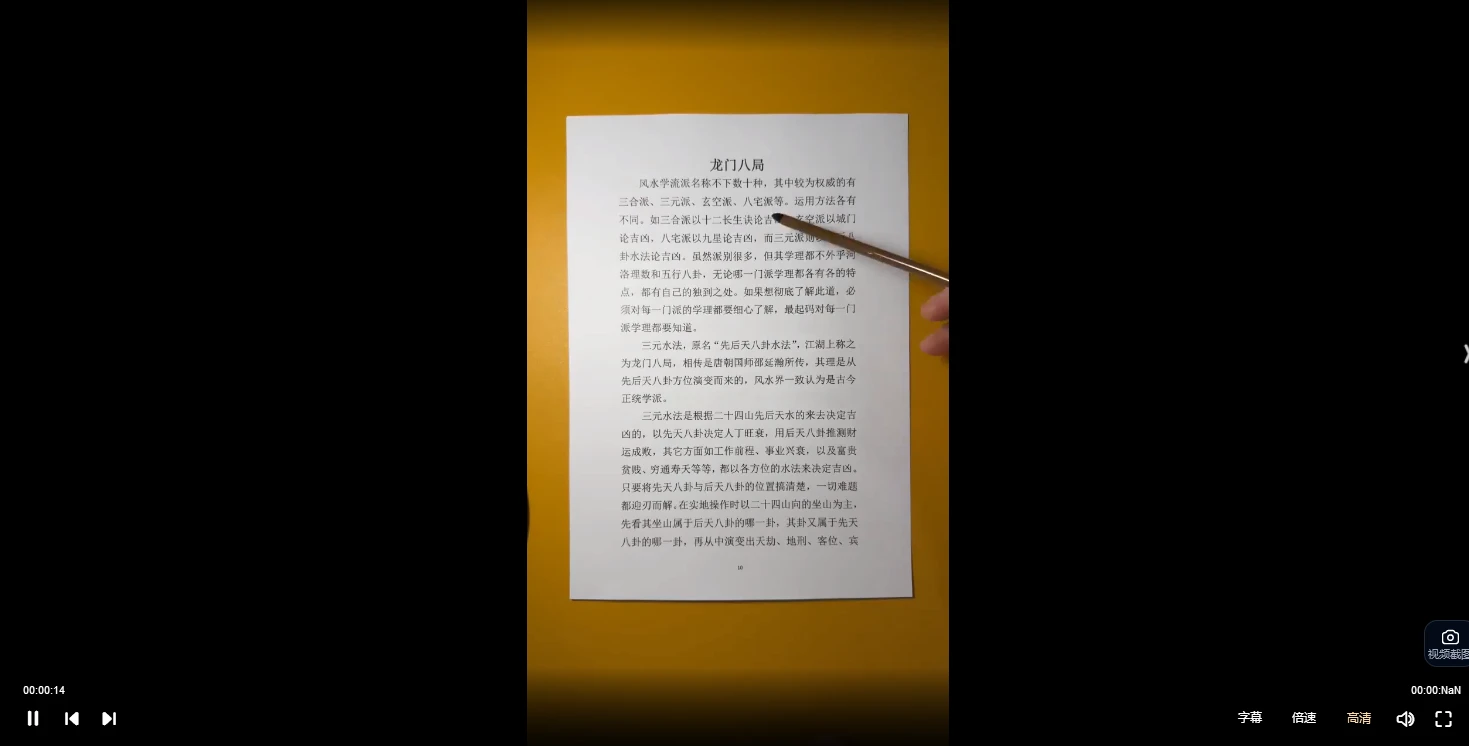 龙门八局
风水学流派名称不下数十种，其中较为权威的有
三合派、三元派、玄空派、八宅派等。运用方法各有
不同。如三合派以十二长生诀论吉 玄空派以城门
论吉凶，八宅派以九星论吉凶，而三元派则以 八
卦水法论吉凶。虽然派别很多，但其学理都不外乎河
洛理数和五行八卦，无论哪一门派学理都各有各的特
点，都有自己的独到之处。如果想彻底了解此道，必
须对每一门派的学理都要细心了解，最起码对每一门
派学理都要知道。
三元水法，原名“先后天八卦水法”，江湖上称之
为龙门八局，相传是唐朝国师邵延瀚所传，其理是从
先后天八卦方位演变而来的，风水界一致认为是古今
正统学派。
三元水法是根据二十四山先后天水的来去决定吉
凶的，以先天八卦决定人丁旺衰，用后天八卦推测财
运成败，其它方面如工作前程、事业兴衰，以及富贵
贫贱、穷通寿夭等等，都以各方位的水法来决定吉凶。
只要将先天八卦与后天八卦的位置搞清楚，一切难题
都迎刃而解。在实地操作时以二十四山向的坐山为主，
先看其坐山属于后天八卦的哪一卦，其卦又属于先天
八卦的哪一卦，再从中演变出天劫、地刑、客位、宾
视频截图
00:00:14
00:00:NaN
字幕 倍速 高清